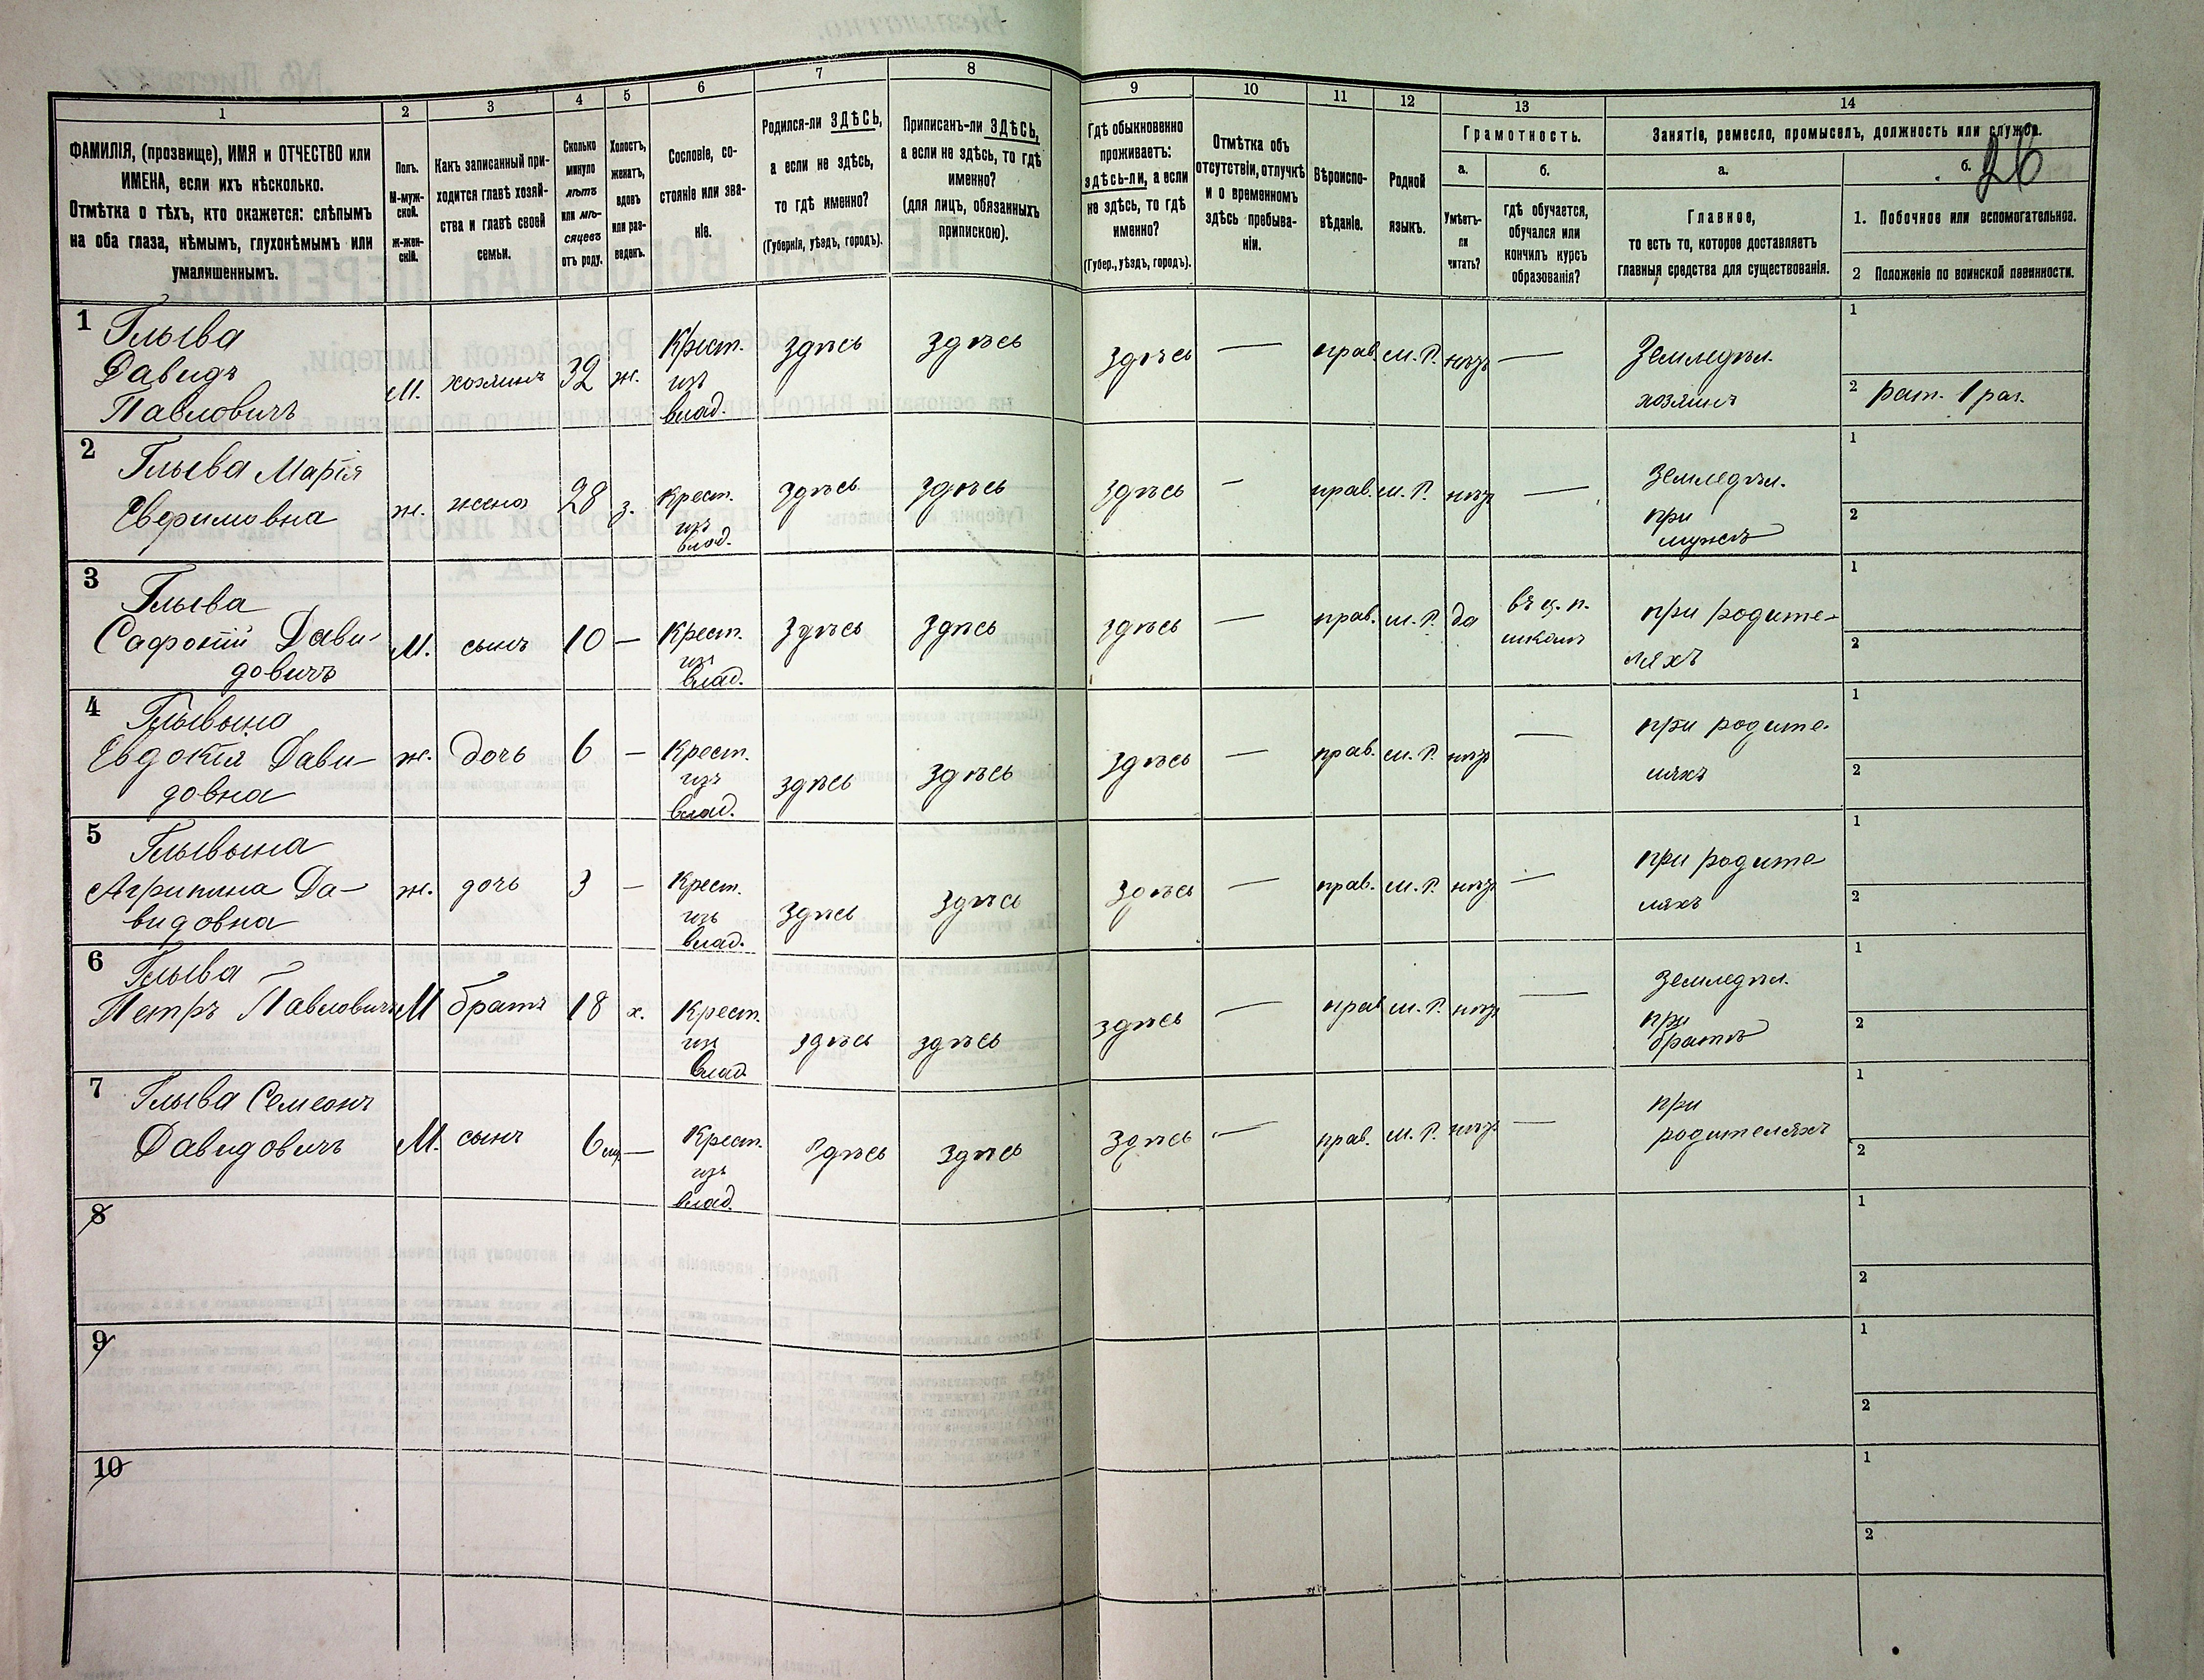 26
1
2
3
4
5
6
7
8
9
10
11
12
13
14
ФАМИЛІЯ, (прозвище), ИМЯ и ОТЧЕСТВО или
ИМЕНА, если ихъ нѣсколько.
Отмѣтка о тѣхъ, кто окажется: слѣпымъ
на оба глаза, нѣмымъ, глухонѣмымъ или
умалишеннымъ.
Полъ.
М-муж-
ской.
ж-жен-
скій.
Какъ записанный при-
ходится главѣ хозяй-
ства и главѣ своей
семьи.
Сколько
минуло
лѣтъ
или мѣ-
сяцевъ
отъ роду.
Холостъ,
женатъ,
вдовъ
или раз-
веденъ.
Сословіе, со-
стояніе или зва-
ніе.
Родился-ли ЗДѢСЬ,
а если не здѣсь,
то гдѣ именно?
(Губернія, уѣздъ, городъ).
Приписанъ-ли ЗДѢСЬ,
а если не здѣсь, то гдѣ
именно?
(для лицъ, обязанныхъ
припискою).
Гдѣ обыкновенно
проживаетъ:
здѣсь-ли, а если
не здѣсь, то гдѣ
именно?
(Губер., уѣздъ, городъ).
Отмѣтка объ
отсутствіи, отлучкѣ
и о временномъ
здѣсь пребыва-
ніи.
Вѣроиспо-
вѣданіе.
Родной
языкъ.
Грамотность.
а.
Умѣетъ-
ли
читать?
б.
гдѣ обучается,
обучался или
кончилъ курсъ
образованія?
Занятіе, ремесло, промыселъ, должность или служба.
а.
Главное,
то есть то, которое доставляетъ
главныя средства для существованія.
б.
1. Побочное или вспомогательное.
2 Положеніе по воинской повинности.
1
Глыва
Давидъ
Павловичъ
М.
хозяинъ
32
ж.
Крест.
изъ
влад.
здѣсь
здѣсь
здѣсь
—
прав.
м. Р.
нѣтъ
—
Земледѣл.
хозяинъ
1
2 рат. 1 раз.
2
Глыва Марія
Евфимовна
ж.
жена
28
з.
Крест.
изъ
влад.
здѣсь
здѣсь
здѣсь
—
прав.
м. Р.
нѣтъ
—
Земледѣл.
при
мужѣ
1
2
3
Глыва
Сафоній Дави-
довичъ
М.
сынъ
10
—
Крест.
изъ
влад.
здѣсь
здѣсь
здѣсь
—
прав.
м. Р.
да
въ ц. п.
школѣ
при родите-
ляхъ
1
2
4
Глывына
Евдокія Дави-
довна
ж.
дочь
6
—
Крест.
изъ
влад.
здѣсь
здѣсь
здѣсь
—
прав.
м. Р.
нѣтъ
—
при родите-
ляхъ
1
2
5
Глывына
Агрипина Да-
видовна
ж.
дочь
3
—
Крест.
изъ
влад.
здѣсь
здѣсь
здѣсь
—
прав.
м. Р.
нѣтъ
—
при родите-
ляхъ
1
2
6
Глыва
Петръ Павловичъ
М
братъ
18
х.
Крест.
изъ
влад.
здѣсь
здѣсь
здѣсь
—
прав.
м. Р.
нѣтъ
—
Земледѣл.
при
братѣ
1
2
7
Глыва Семеонъ
Давидовичъ
М.
сынъ
6 мѣ.
—
Крест.
изъ
влад.
здѣсь
здѣсь
здѣсь
—
прав.
м. Р.
нѣтъ
—
при
родителяхъ
1
2
8
1
2
9
1
2
10
1
2